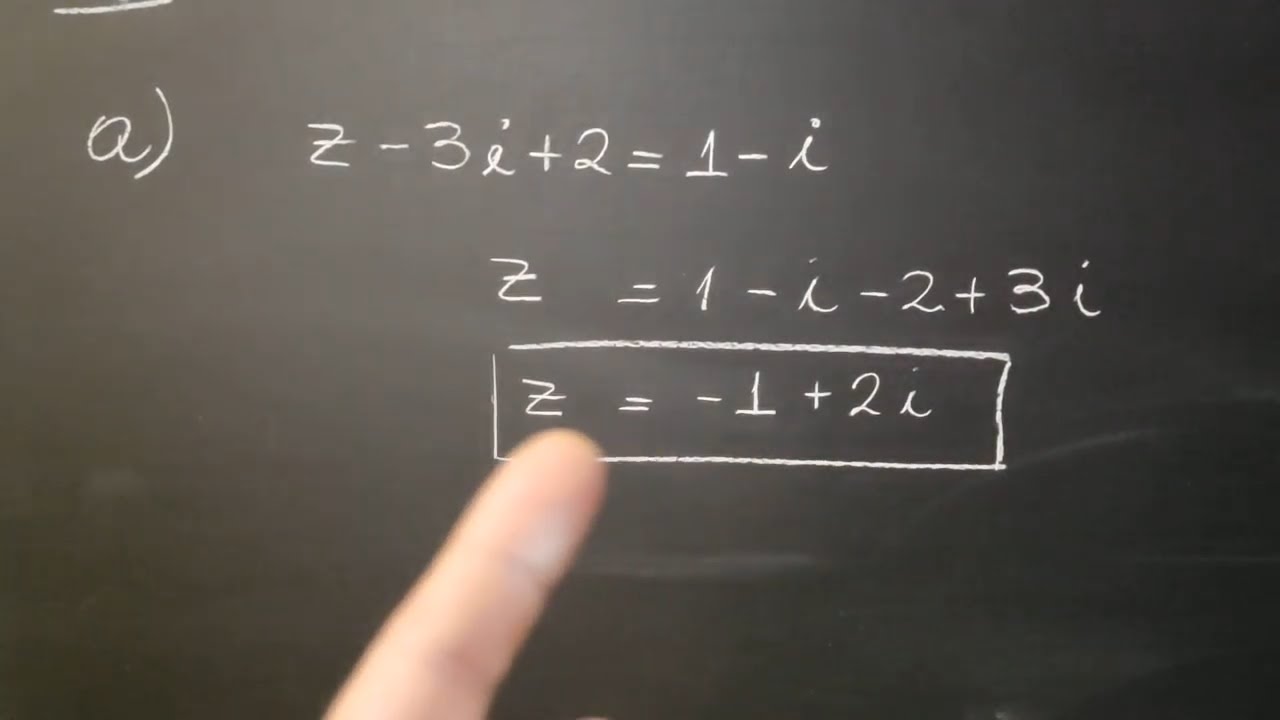 a) z - 3i + 2 = 1 - i
z = 1 - i - 2 + 3i
z = -1 + 2i